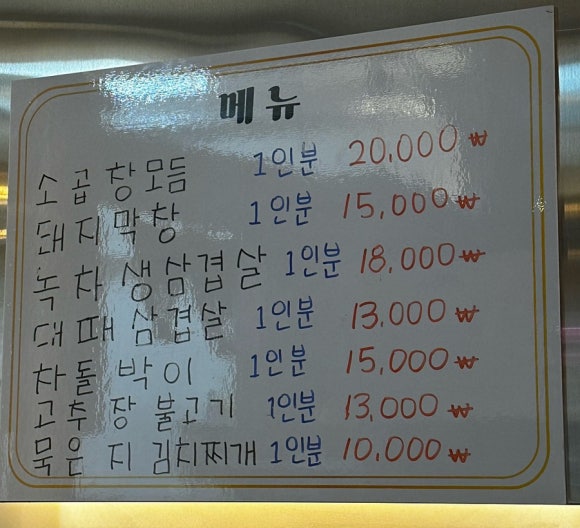 메뉴
소곱창모듬 1인분 20,000₩
돼지막창 1인분 15,000₩
녹차생삼겹살 1인분 18,000₩
대때삼겹살 1인분 13,000₩
차돌박이 1인분 15,000₩
고추장불고기 1인분 13,000₩
묵은지 김치찌개 1인분 10,000₩